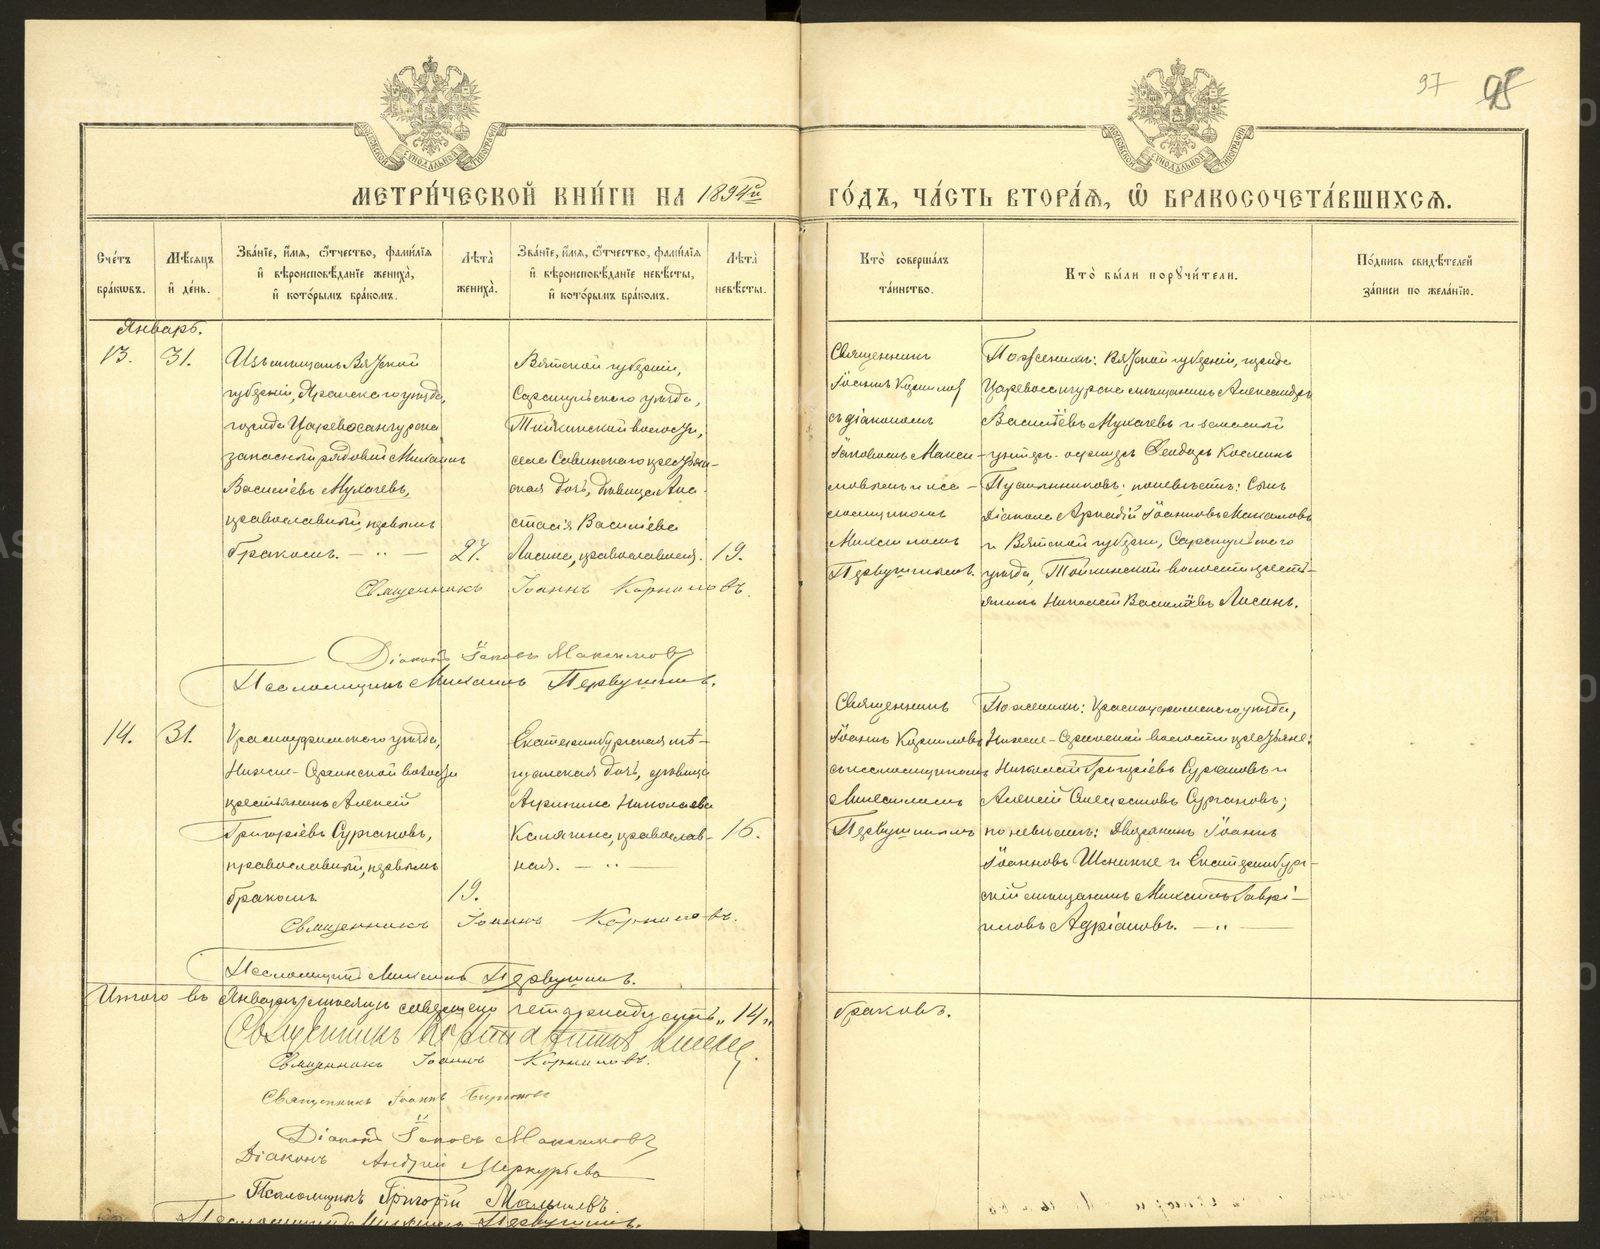 97 95
МЕТРИ́ЧЕСКОЙ КНИ́ГИ НА 1894й ГО́ДЪ, ЧА́СТЬ ВТОРА́Я, Ѽ БРАКОСОЧЕТА́ВШИХСЯ.
Сче́тъ бра́ковъ.
Мѣ́сяцъ и҆ де́нь.
Зва́нїе, и҆́мя, ѻ҆́тчество, фами́лїя и҆ вѣроисповѣ́данїе жениха̀, и҆ кото́рымъ бра́комъ.
Лѣта̀ жениха̀.
Зва́нїе, и҆́мя, ѻ҆́тчество, фами́лїя и҆ вѣроисповѣ́данїе невѣ́сты, и҆ кото́рымъ бра́комъ.
Лѣта̀ невѣ́сты.
Кто̀ соверша́лъ та́инство.
Кто̀ бы́ли пору́чители.
По́дпись свидѣ́телей за́писи по жела́нїю.
Январь.
13.
31.
Изъ мѣщанъ Вятской
губерніи, Яранскаго уѣзда,
города Царевосанчурска
запасный рядовой Михаилъ
Василіевъ Мухачевъ,
православный, первымъ
бракомъ. — „ —
27.
Вятской губерніи,
Сарапульскаго уѣзда,
волости,
села Савинскаго крестьян-
ская дочь, дѣвица Ана-
стасія Василіева
Лисина, православная.
19.
Священникъ
Іоаннъ Корниловъ
съ діакономъ
Іаковомъ Макси-
мовымъ и пса-
ломщикомъ
Михаиломъ
Первушинымъ.
По женихѣ: Вятской губерніи, города
Царевосанчурска мѣщанинъ Александръ
Василіевъ Мухачевъ и запасный
унтеръ-офицеръ Ѳеодоръ Косминъ
по невѣстѣ: Сынъ
Діакона Аркадій Іоанновъ Макаловъ
и Вятской губерніи, Сарапульскаго
уѣзда, волости кресть-
янинъ Николай Василіевъ Лисинъ.
Священникъ Іоаннъ Корниловъ.
Діаконъ Іаковъ Максимовъ
Псаломщикъ Михаилъ Первушинъ.
14.
31.
Красноуфимскаго уѣзда,
Нижне-Сергинской волости
крестьянинъ Алексій
Григоріевъ Сургановъ,
православный, первымъ
бракомъ
19.
Екатеринбургская мѣ-
щанская дочь, дѣвица
Агрипина Николаева
Калягина, православ-
ная. — „ —
16.
Священникъ
Іоаннъ Корниловъ
съ псаломщикомъ
Михаиломъ
Первушинымъ
По женихѣ: Красноуфимскаго уѣзда,
Нижне-Сергинской волости крестьяне:
Николай Григоріевъ Сургановъ и
Алексій Сургановъ;
по невѣстѣ: Дворянинъ Іоаннъ
Іоанновъ и Екатеринбург-
скій мѣщанинъ Михаилъ Гаврі-
иловъ Адріановъ. — „ —
Священникъ Іоаннъ Корниловъ.
Псаломщикъ Михаилъ Первушинъ.
Итого въ Январѣ мѣсяцѣ совершено четырнадцать „14„ браковъ.
Священникъ
Священникъ Іоаннъ Корниловъ.
Священникъ Іоаннъ
Діаконъ Іаковъ Максимовъ
Діаконъ Андрей Меркурьевъ
Псаломщикъ Григорій Малышевъ.
Псаломщикъ Михаилъ Первушинъ.